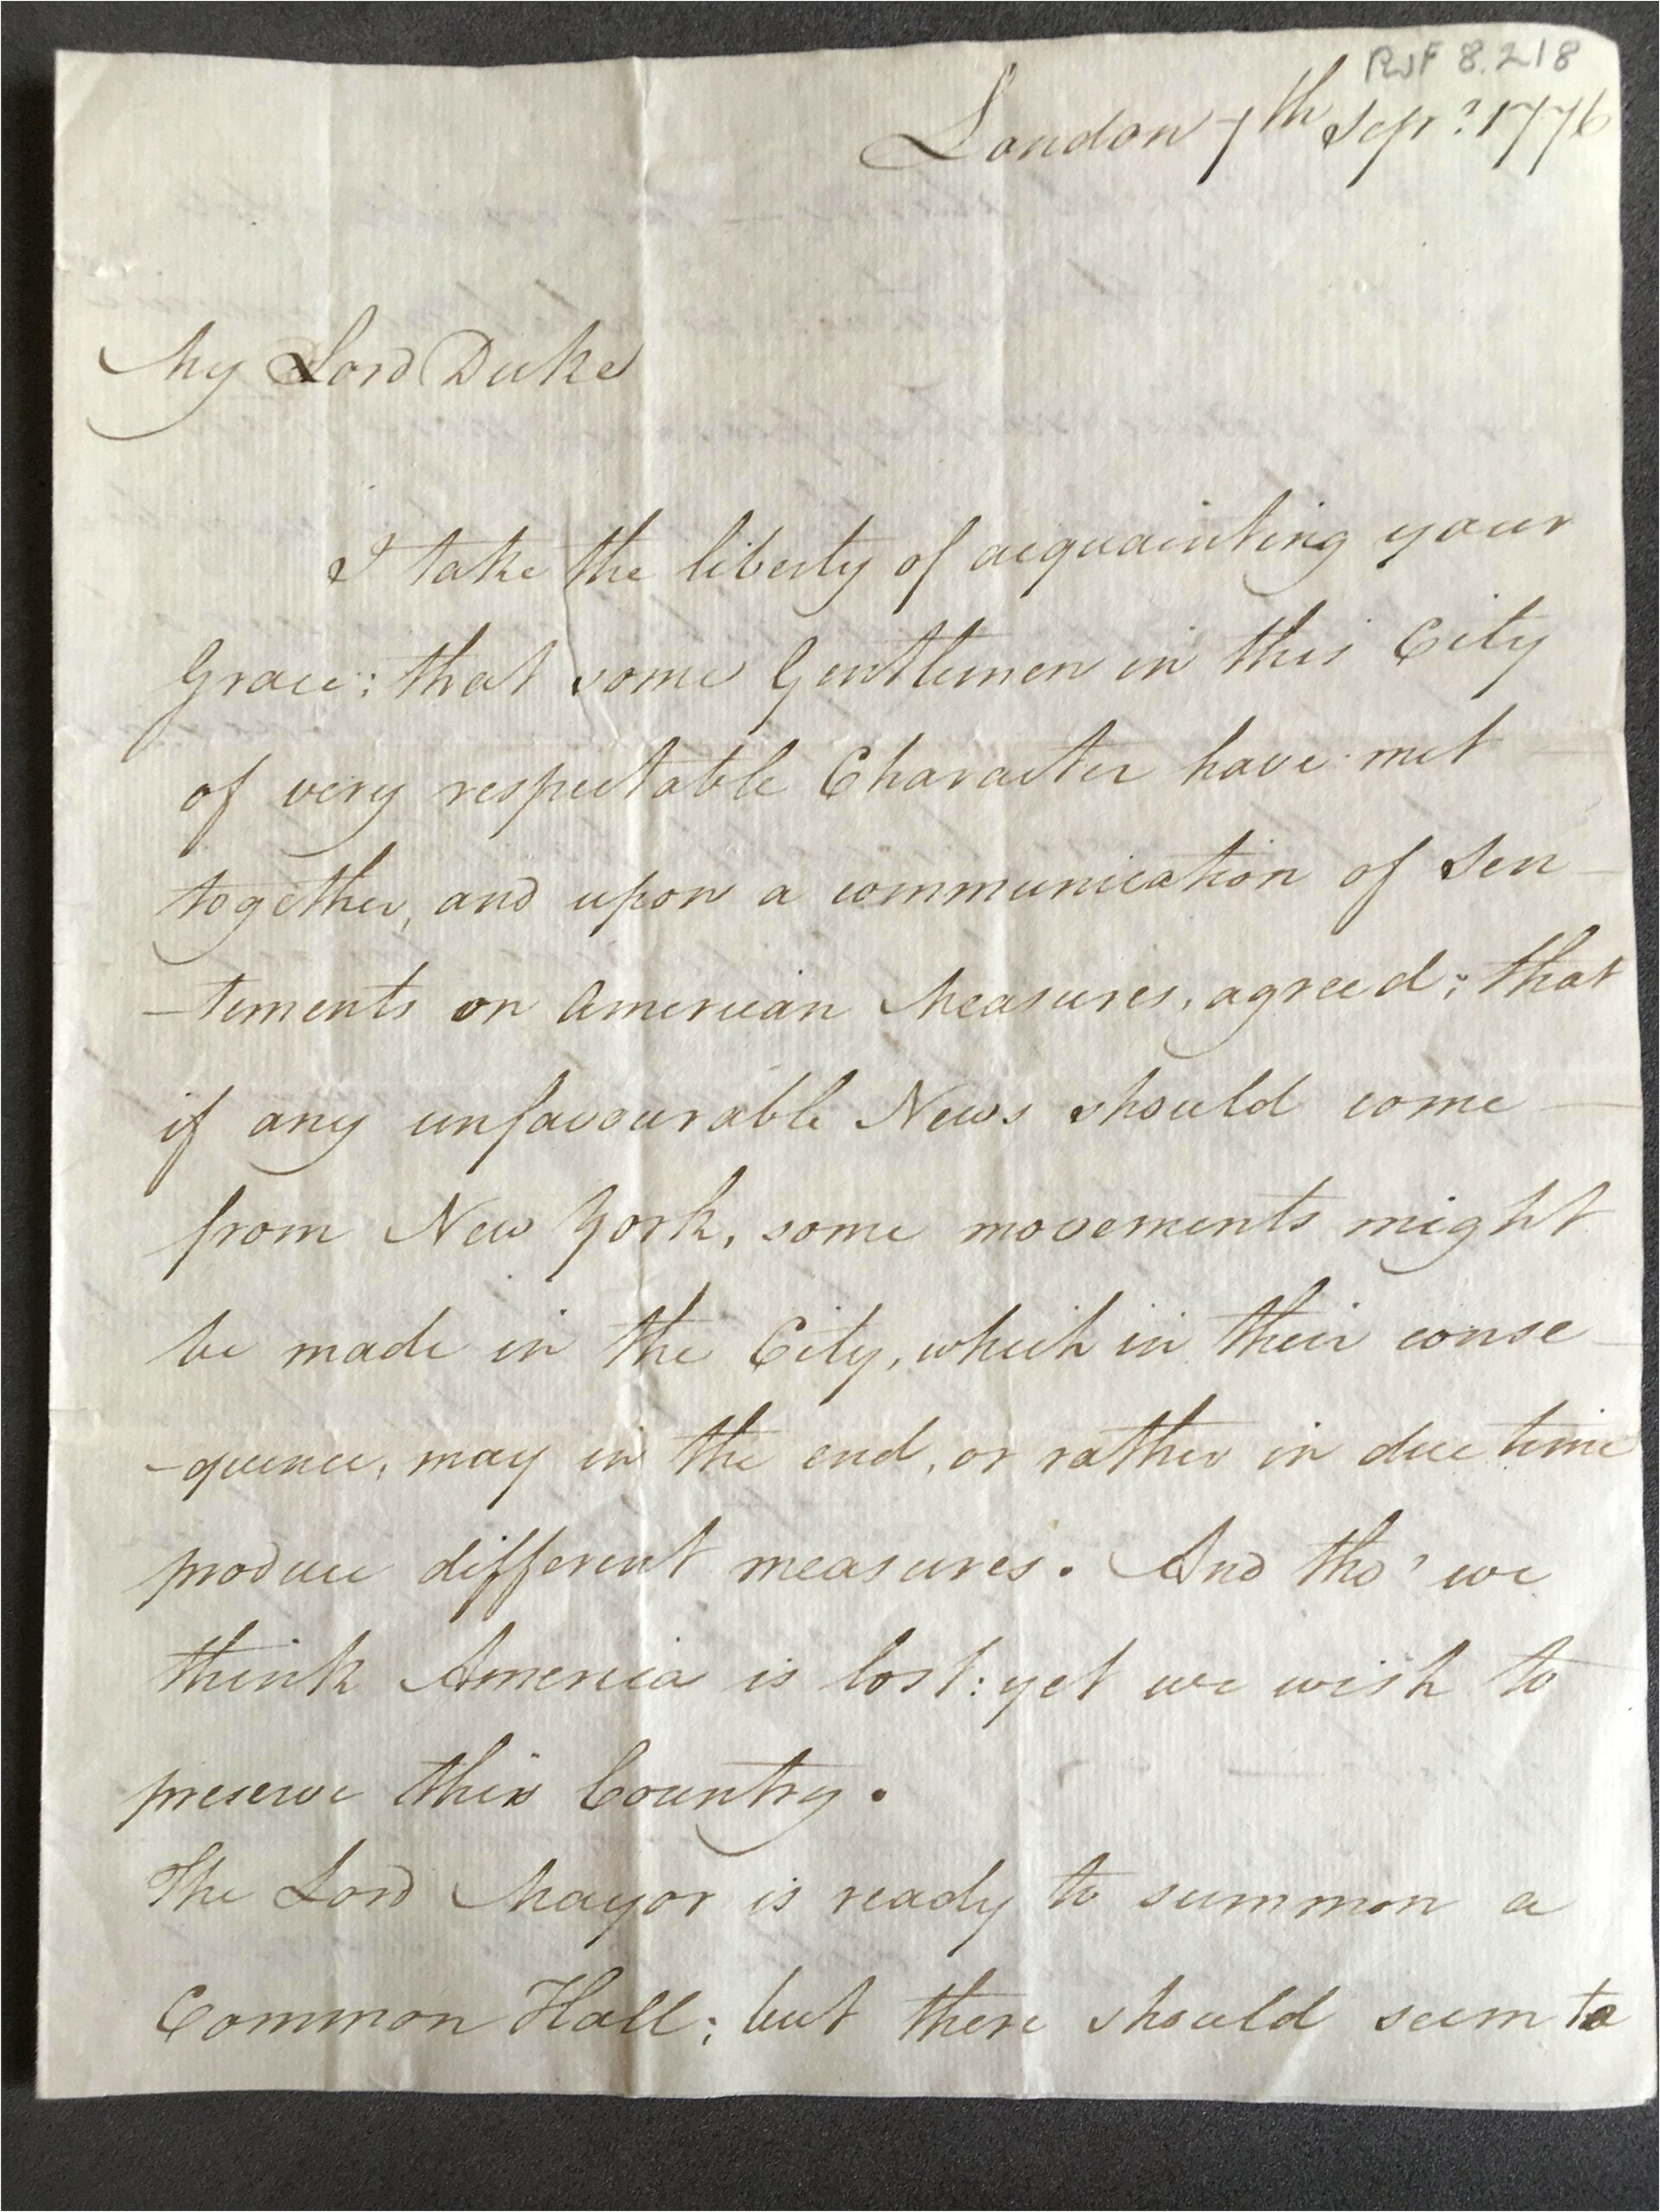 PwF 8.218
London 7th Sepr: 1776
My Lord Duke
I take the liberty of acquainting your
Grace; that some Gentlemen in this City
of very respectable Character have met
together, and upon a communication of Sen-
-tements on American Measures, agreed; that
if any unfavourable News should come
from New York, some movements might
be made in the City, which in their conse-
-quence, may in the end, or rather in due time
produce different measures. And tho' we
think America is lost: yet we wish to
preserve this Country.
The Lord Mayor is ready to summon a
Common Hall; but there should seem to